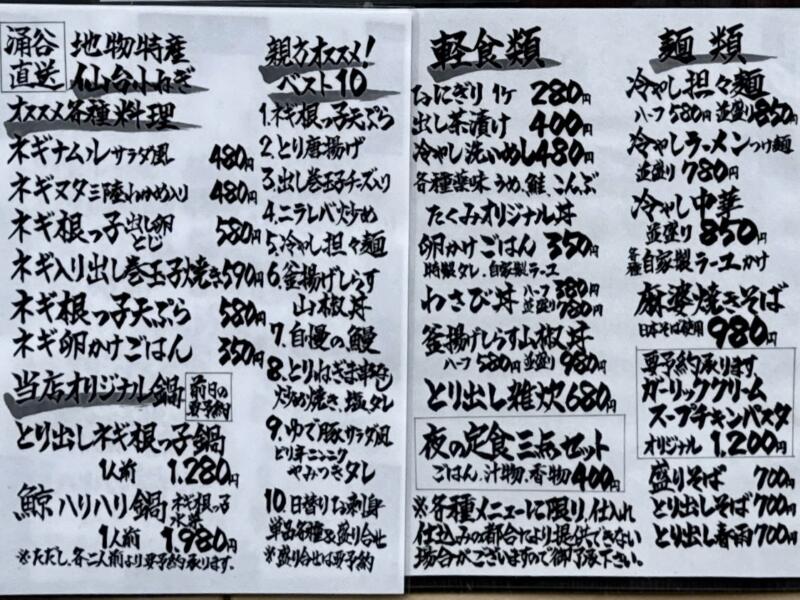 涌谷
直送
地物特産
仙台小ねぎ
オススメ各種料理
ネギナムル サラダ風 480円
ネギヌタ 三陸わかめ入り 480円
ネギ根っ子 出し卵とじ 580円
ネギ入り出し巻玉子焼き 590円
ネギ根っ子天ぷら 580円
ネギ卵かけごはん 350円
当店オリジナル鍋 前日の要予約
とり出しネギ根っ子鍋
1人前 1.280円
鯨ハリハリ鍋 ネギ根っ子 水菜
1人前 1.980円
※ただし、各二人前より要予約承ります。
親方オススメ!
ベスト10
1.ネギ根っ子天ぷら
2.とり唐揚げ
3.出し巻玉子チーズ入り
4.ニラレバ炒め
5.冷やし担々麺
6.釜揚げしらす
山椒丼
7.自慢の鰻
8.とりねぎま串
炒め焼き、塩、タレ
9.ゆで豚サラダ風
ピリ辛ニンニク
やみつきタレ
10.日替りお刺身
単品各種&盛り合せ
※盛り合せは要予約
軽食類
おにぎり 1ケ 280円
出し茶漬け 400円
冷やし洗いめし 480円
各種薬味 うめ、鮭、こんぶ
たくみオリジナル丼
卵かけごはん 350円
特製タレ、自家製ラー油
わさび丼 ハーフ 380円 並盛り 780円
釜揚げしらす山椒丼
ハーフ 580円 並盛り 980円
とり出し雑炊 680円
夜の定食三点セット
ごはん、汁物、香物 400円
※各種メニューに限り、仕入れ
仕込みの都合により提供できない
場合がございますので御了承下さい。
麺類
冷やし担々麺
ハーフ 580円 並盛り 850円
冷やしラーメン つけ麺
並盛り 780円
冷やし中華
並盛り 850円
各種 自家製ラー油かけ
麻婆焼きそば
日本そば使用 980円
要予約承ります。
ガーリッククリーム
スープチキンパスタ
オリジナル 1.200円
盛りそば 700円
とり出しそば 700円
とり出し春雨 700円